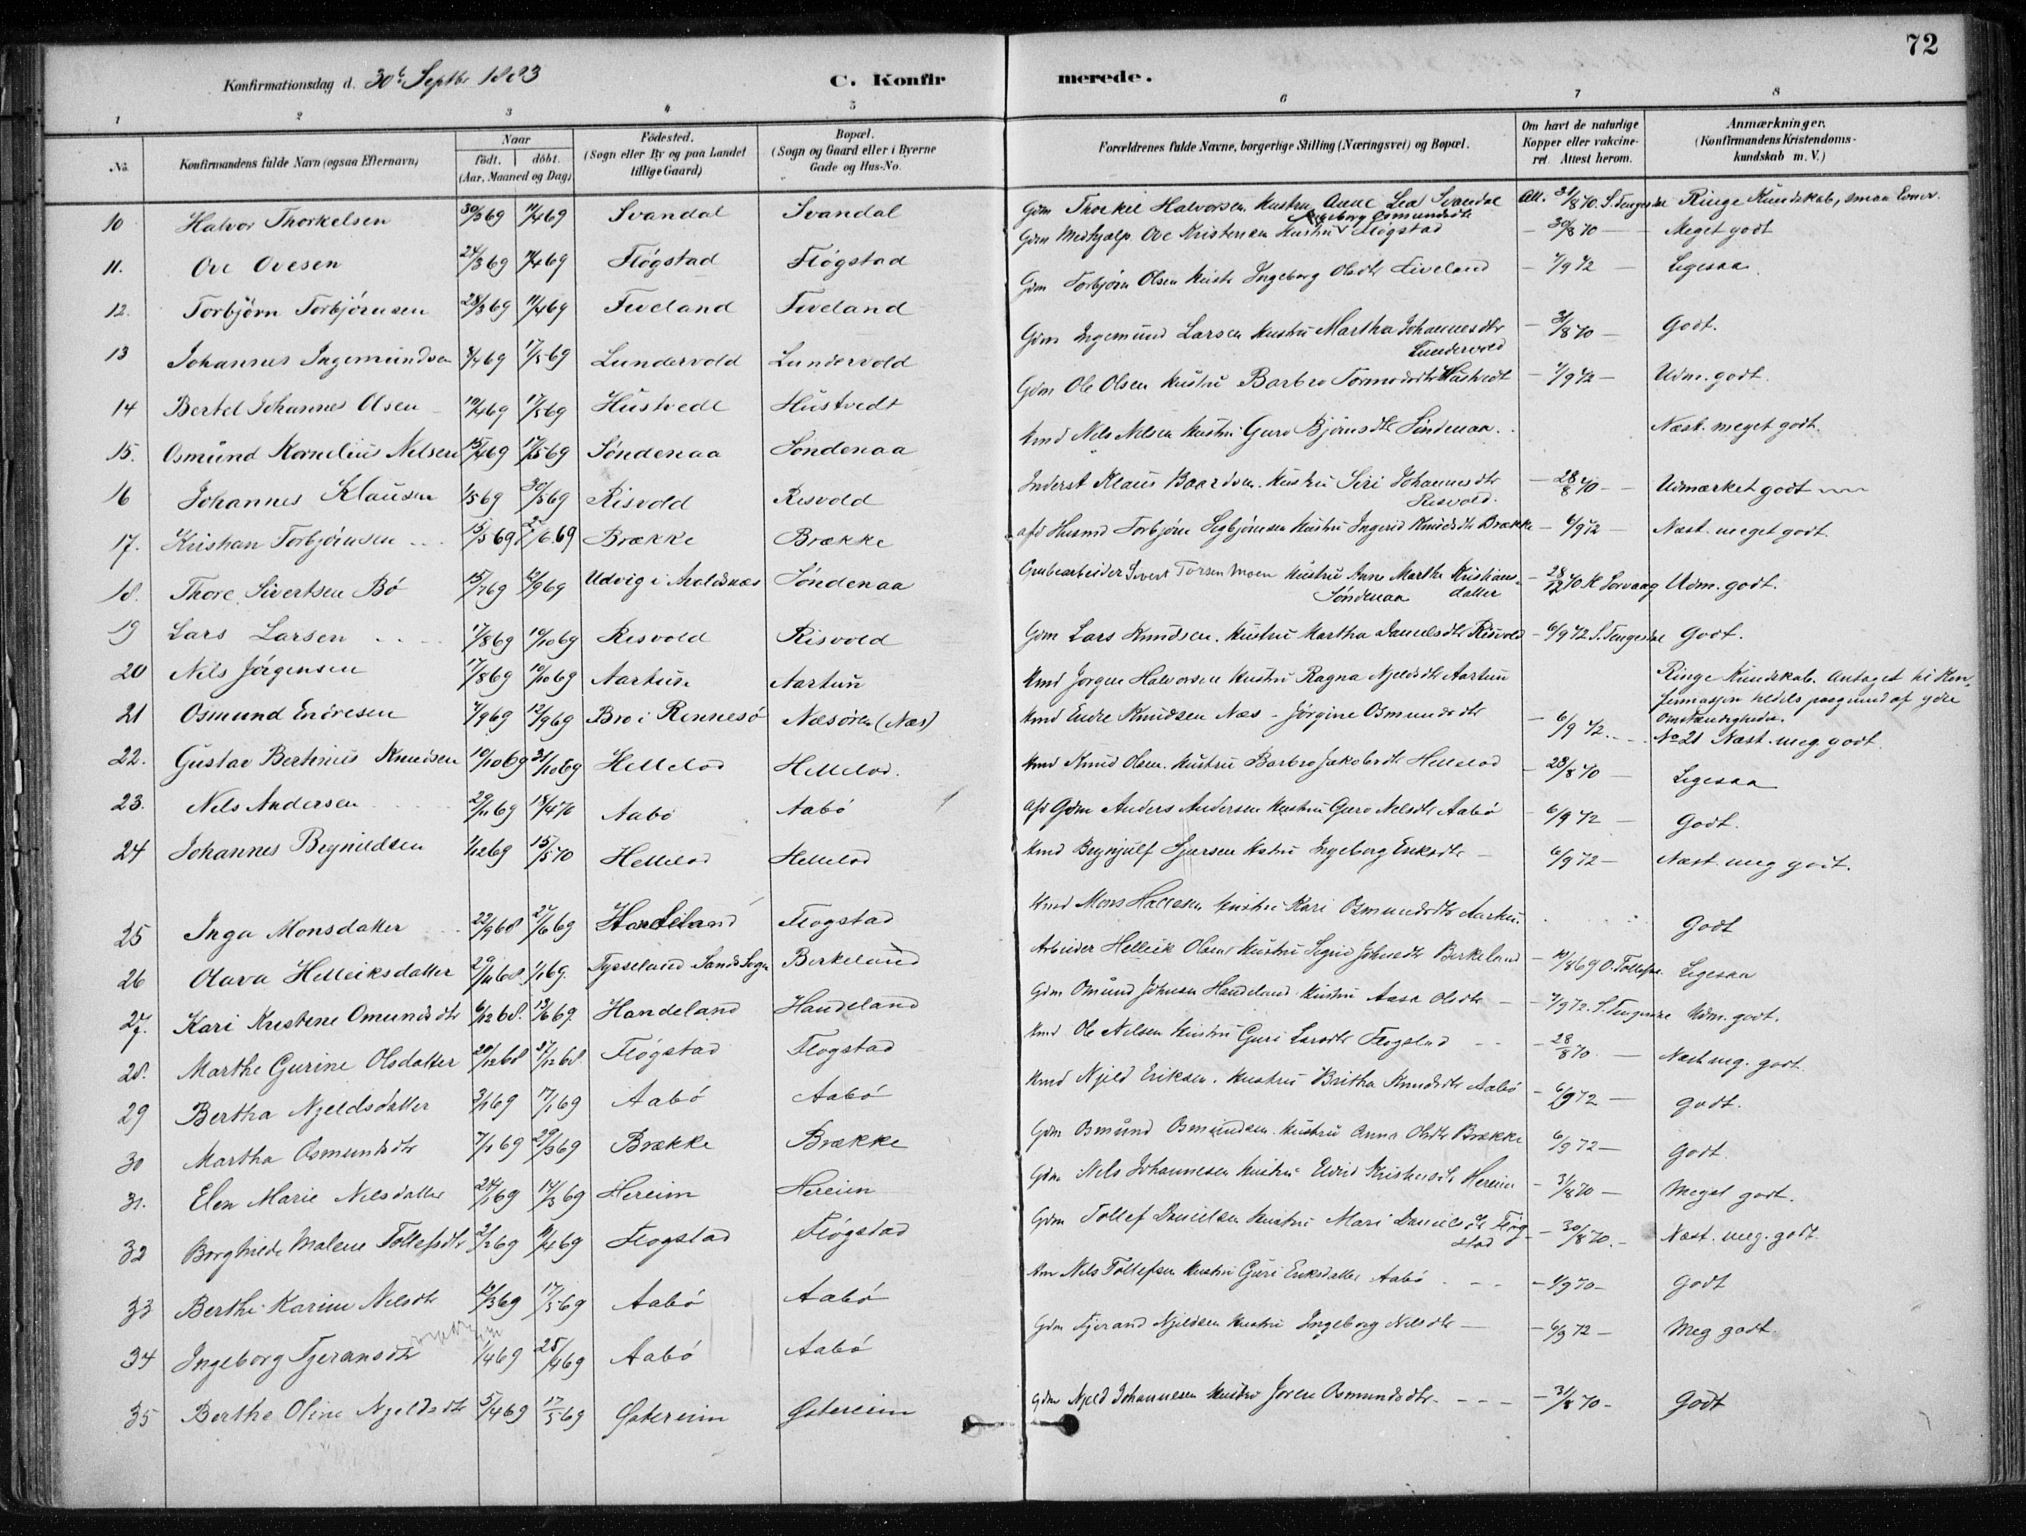 72
Konfirmationsdag d. 30te Septbr 1883 C. Konfir merede.
1 2 3 4 5 6 7 8
No. Konfirmandens fulde Navn (ogsaa Efternavn) Naar født. døbt. (Aar, Maaned og Dag) Fødested. (Sogn eller By og paa Landet tillige Gaard) Bopæl. (Sogn og Gaard eller i Byerne Gade og Hus-No. Forældrenes fulde Navne, borgerlige Stilling (Næringsvei) og Bopæl. Om havt de naturlige Kopper eller vakcineret. Attest herom. Anmærkninger. (Konfirmandens Kristendomskundskab m. V.)
10 Halvor Thorkelsen 30/3 69 11/4 69 Svandal Svandal Gdm Thorkil Halvorsen Hustru Anne Lea Svandal Att. 31/8 70. S. Tengesdal Ringe Kundskab, smaa Evner.
11. Ove Ovesen 24/3 69 11/4 69 Fløgstad Fløgstad Gdm Medhjælp. Ove Kristensen Hustru Ingeborg Osmundsdtr Fløgstad – 30/8 70 – Meget godt
12. Torbjørn Torbjørnsen 28/3 69 11/4 69 Fiveland Fiveland Gdm Torbjørn Olsen Hustr Ingeborg Olsdtr Fiveland – 7/9 72 – Ligesaa
13 Johannes Ingemundsen 8/4 69 17/5 69 Lundervold Lundervold Gdm Ingemund Larsen Hustru Martha Johannesdtr Lundervold – 31/8 70 – Godt.
14 Bertel Johannes Olsen 19/4 69 17/5 69 Hustvedt Hustvedt Gdm Ole Olsen Hustru Barbro Tormodsdtr Hustvedt – 7/9 72 – Udm. godt.
15. Osmund Kornelius Nilsen 15/4 69 17/5 69 Søndenaa Søndenaa Hmd Nils Nilsen Hustru Guro Bjørnsdtr Søndenaa. Næst. meget godt.
16 Johannes Klausen 1/5 69 30/5 69 Risvold Risvold Inderst Klaus Baardsen. Hustru Siri Johannesdtr Risvold. – 28/8 70 – Udmærket godt
17. Kristian Torbjørnsen 15/5 69 27/6 69 Brække Brække afd Husmd Torbjørn Sigbjørnsen Hustru Ingerid Knudsdtr Brække – 6/9 72 – Næst. meget godt.
18. Thore Sivertsen Bø 15/7 69 12/9 69 Udvig i Avaldsnæs Søndenaa Grubearbeider Sivert Torsen Moen Hustru Anne Martha Kristiansdatter Søndenaa – 28/12 70 Udm. godt.
19 Lars Larsen 17/8 69 10/10 69 Risvold Risvold Gdm Lars Knudsen. Hustru Martha Danielsdtr Risvold – 6/9 72 S. Tengesdal Godt.
20 Nils Jørgensen 17/8 69 10/10 69 Aartun Aartun Hmd Jørgen Halvorsen Hustru Ragna Njeldsdtr Aartun Ringe Kundskab. Antaget til Konfirmasjon tildels paagrund af ydre Omstændigheder.
21 Osmund Endresen 7/9 69 12/9 69 Bro i Rennesø Næsøren (Næs) Hmd Endre Knudsen Næs – Jørgine Osmundsdtr – 6/9 72. No 21 Næst. meg. godt.
22. Gustav Bertinius Knudsen 10/10 69 31/10 69 Hellelod Hellelod. Hmd Knud Olsen. Hustru Barbro Jakobsdtr Hellelod – 28/8 70 – Ligesaa
23. Nils Andersen 29/11 69 18/4 70 Aabø Aabø afd Gdm Anders Andersen Hustru Guro Nilsdtr Aabø – 6/9 72 – Godt.
24 Johannes Brynildsen 1/12 69 15/5 70 Hellelod Hellelod Hmd Brynjulf Hustru Ingeborg Eriksdtr – 6/9 72 – Næst. meg godt.
25 Inga Monsdatter 22/9 68 27/6 69 Handeland Fløgstad Hmd Mons Hustru Kari Osmundsdtr Aartun. Godt
26 Olava Helleiksdatter 29/11 68. 1/1 69. Tysseland Sands Sogn Birkeland Arbeider Helleik Olsen Hustru Sigrid Johnsdtr Birkeland – 10/8 69 O. Tollefsen Ligesaa
27. Kari Kristine Omundsdtr 6/12 68. 13/6 69. Handeland Handeland Gdm Omund Johnsen Handeland. Hustru Aasa Olsdtr – 7/9 72. S. Tengesdal Udm. godt.
28. Marthe Gurine Olsdatter 20/12 68 27/12 68 Fløgstad Fløgstad Hmd Ole Nilsen Hustru Guri Larsdtr Fløgstad – 28/8 70. – Næst mg. godt.
29 Bertha Njeldsdatter 3/1 69 17/1 69 Aabø Aabø Hmd Njeld Eriksen. Hustru Britha Knudsdtr Aabø – 6/9 72 – Godt.
30 Martha Osmundsdtr 7/1 69 29/3 69 Brække Brække Gdm Osmund Osmundsen. Hustru Anna Olsdtr Brække 6/9 72 – Godt.
31. Elen Marie Nilsdatter 24/1 69 14/3 69 Hereim Hereim Gdm Nils Johannesen Hustru Elvird Hereim – 31/8 70 – Meget godt.
32 Borghilde Malene Tollefsdtr 2/2 69 11/4 69 Fløgstad Fløgstad Gdm Tollef Danielsen Hustru Mari Danielsdtr Fløgstad – 30/8 70. – Næst. meg. godt.
33 Berthe Karine Nilsdtr 12/3 69 17/5 69 Aabø Aabø Nils Tollefsen Hustru Guri Eriksdatter Aabø – 1/9 70 – Godt
34 Ingeborg Tjeransdtr 1/4 69 25/4 69 Aabø Aabø Gdm Tjerand Njeldsen Hustru Ingeborg Nilsdtr – 6/9 72 – Meg godt.
35 Berthe Oline Njeldsdtr 5/4 69 17/5 69 Østereim Østereim Gdm Njeld Johannesen Hustru Joren Osmundsdtr. – 31/8 70 – Godt